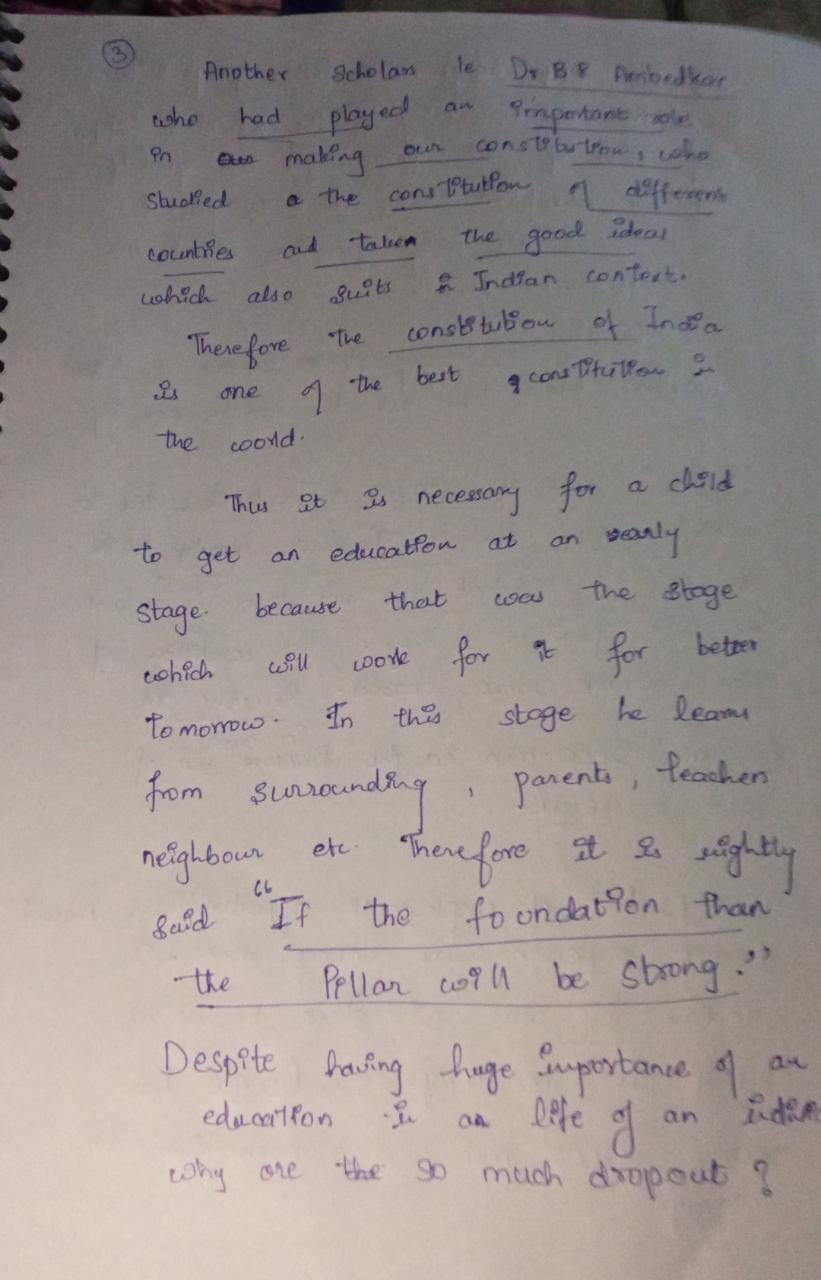 3
Another Scholars ie Dr B R Ambedkar
who had played an important role
in making our constitution, who
studied the constitution of different
countries and taken the good ideas
which also suits in Indian context.
Therefore the constitution of India
is one of the best constitution in
the world.
Thus it is necessary for a child
to get an education at an early
stage. because that was the stage
which will work for it for better
Tomorrow. In this stage he learns
from surrounding, parents, teachers
neighbour etc. Therefore it is rightly
said "If the foundation than
the Pillar will be strong."
Despite having huge importance of an
education in an life of an
why are the so much dropout ?